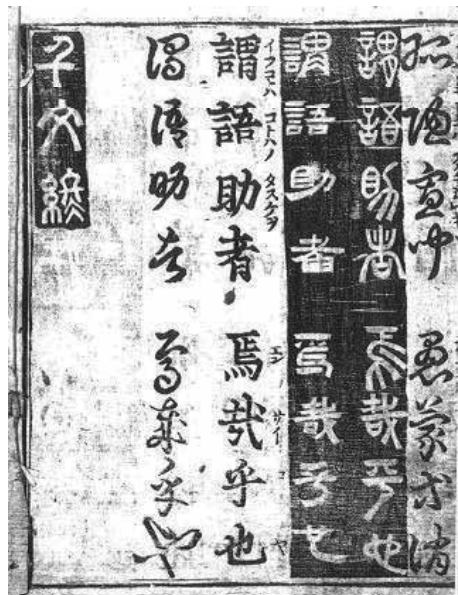 孤陋寡聞 愚蒙等誚
謂語助者 焉哉乎也
謂語助者 焉哉乎也
コトハノ タスケヲ エン サイ コ ヤ
謂語助者 焉哉乎也
謂語助者 焉哉乎也
千文終